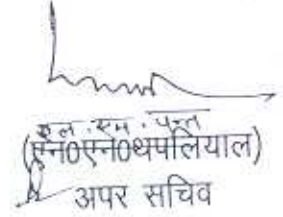 एल. एम. पन्त
(एन0एन0थपलियाल)
अपर सचिव